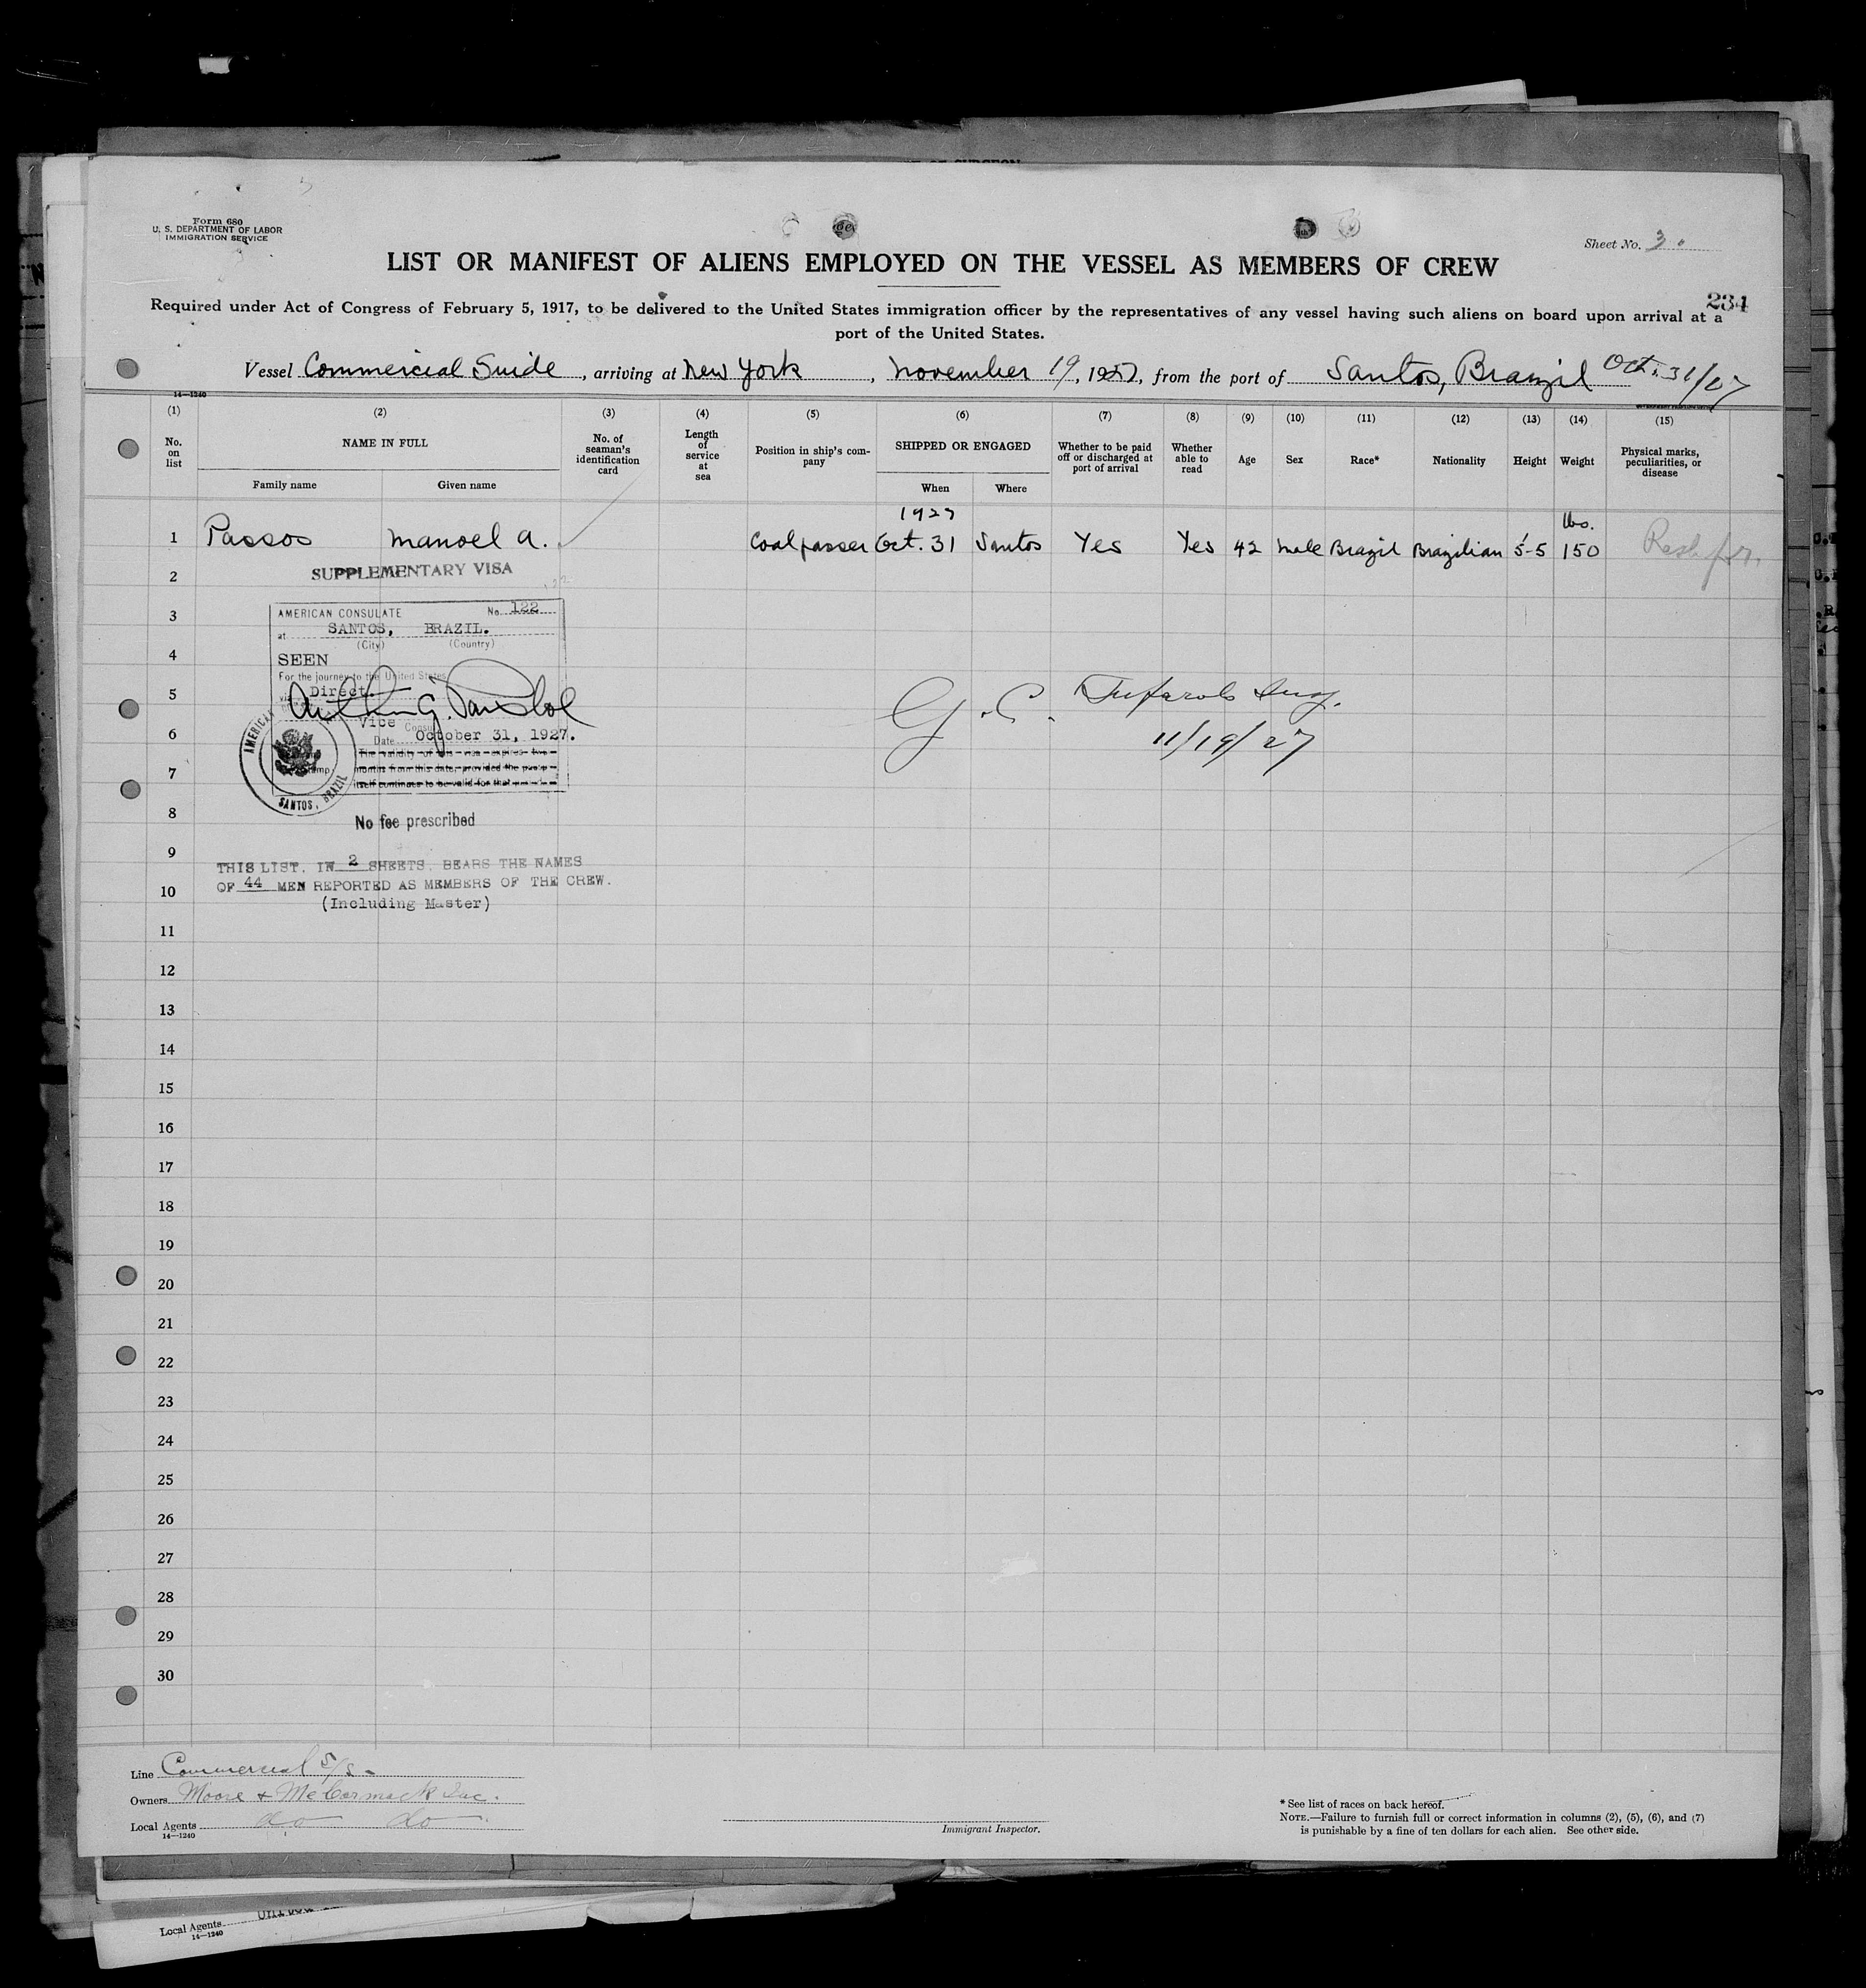 Form 680
U. S. DEPARTMENT OF LABOR
IMMIGRATION SERVICE
Sheet No. 3.
LIST OR MANIFEST OF ALIENS EMPLOYED ON THE VESSEL AS MEMBERS OF CREW
234
Required under Act of Congress of February 5, 1917, to be delivered to the United States immigration officer by the representatives of any vessel having such aliens on board upon arrival at a
port of the United States.
Vessel Commercial Guide, arriving at New York, November 19, 1927, from the port of Santos, Brazil Oct. 31/27
14—1240
(1) (2) (3) (4) (5) (6) (7) (8) (9) (10) (11) (12) (13) (14) (15)
No. on list
NAME IN FULL
Family name Given name
No. of seaman's identification card
Length of service at sea
Position in ship's company
SHIPPED OR ENGAGED
When Where
Whether to be paid off or discharged at port of arrival
Whether able to read
Age
Sex
Race*
Nationality
Height
Weight
Physical marks, peculiarities, or disease
1927
lbs.
1 Passos Manoel A. Coalpasser Oct. 31 Santos Yes Yes 42 Male Brazil Brazilian 5'-5 150
2
SUPPLEMENTARY VISA
3
AMERICAN CONSULATE No. 122
at SANTOS, BRAZIL.
(City) (Country)
4
SEEN
For the journey to the United States
5
via Direct.
Vice Consul
6
Date October 31, 1927.
The validity of this visa expires two
7
months from this date, provided the passport
itself continues to be valid for that period
AMERICAN
SANTOS, BRAZIL
G. C.
11/19/27
8
No fee prescribed
9
THIS LIST, IN 2 SHEETS, BEARS THE NAMES
10
OF 44 MEN REPORTED AS MEMBERS OF THE CREW.
(Including Master)
11
12
13
14
15
16
17
18
19
20
21
22
23
24
25
26
27
28
29
30
Line Commercial S/S
Owners Moore & McCormack Inc.
Local Agents do do
14—1240
Immigrant Inspector.
* See list of races on back hereof.
NOTE.—Failure to furnish full or correct information in columns (2), (5), (6), and (7)
is punishable by a fine of ten dollars for each alien. See other side.
Local Agents
14—1240